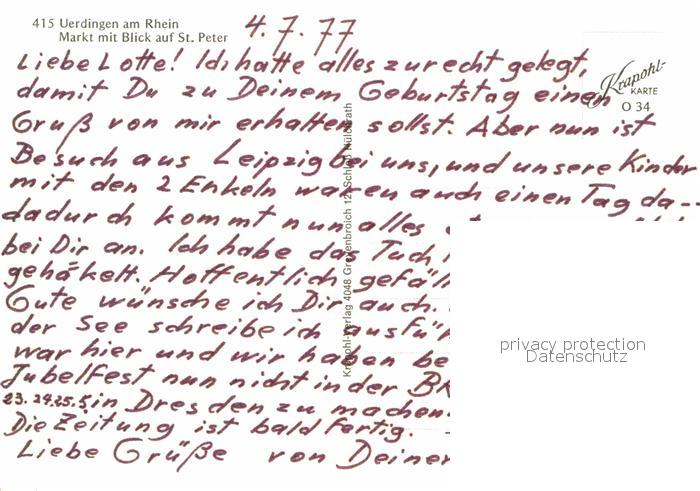 415 Uerdingen am Rhein
Markt mit Blick auf St. Peter
4.7.77
Krapohl-
KARTE
O 34
Liebe Lotte! Ich hatte alles zurecht gelegt,
damit Du zu Deinem Geburtstag einen
Gruß von mir erhalten sollst. Aber nun ist
Besuch aus Leipzig bei uns, und unsere Kinder
mit den 2 Enkeln waren auch einen Tag da --
dadurch kommt nun alles
bei Dir an. Ich habe das Tuch
gehäkelt. Hoffentlich gefäll
Gute wünsche ich Dir auch.
der See schreibe ich ausfü
war hier und wir haben be
Jubelfest nun nicht in der
23. 24. 25. 5. in Dresden zu machen.
Die Zeitung ist bald fertig.
Liebe Grüße von Deiner
Krapohl-Verlag 4048 Grevenbroich 12, Schloß Hülchrath
privacy protection
Datenschutz